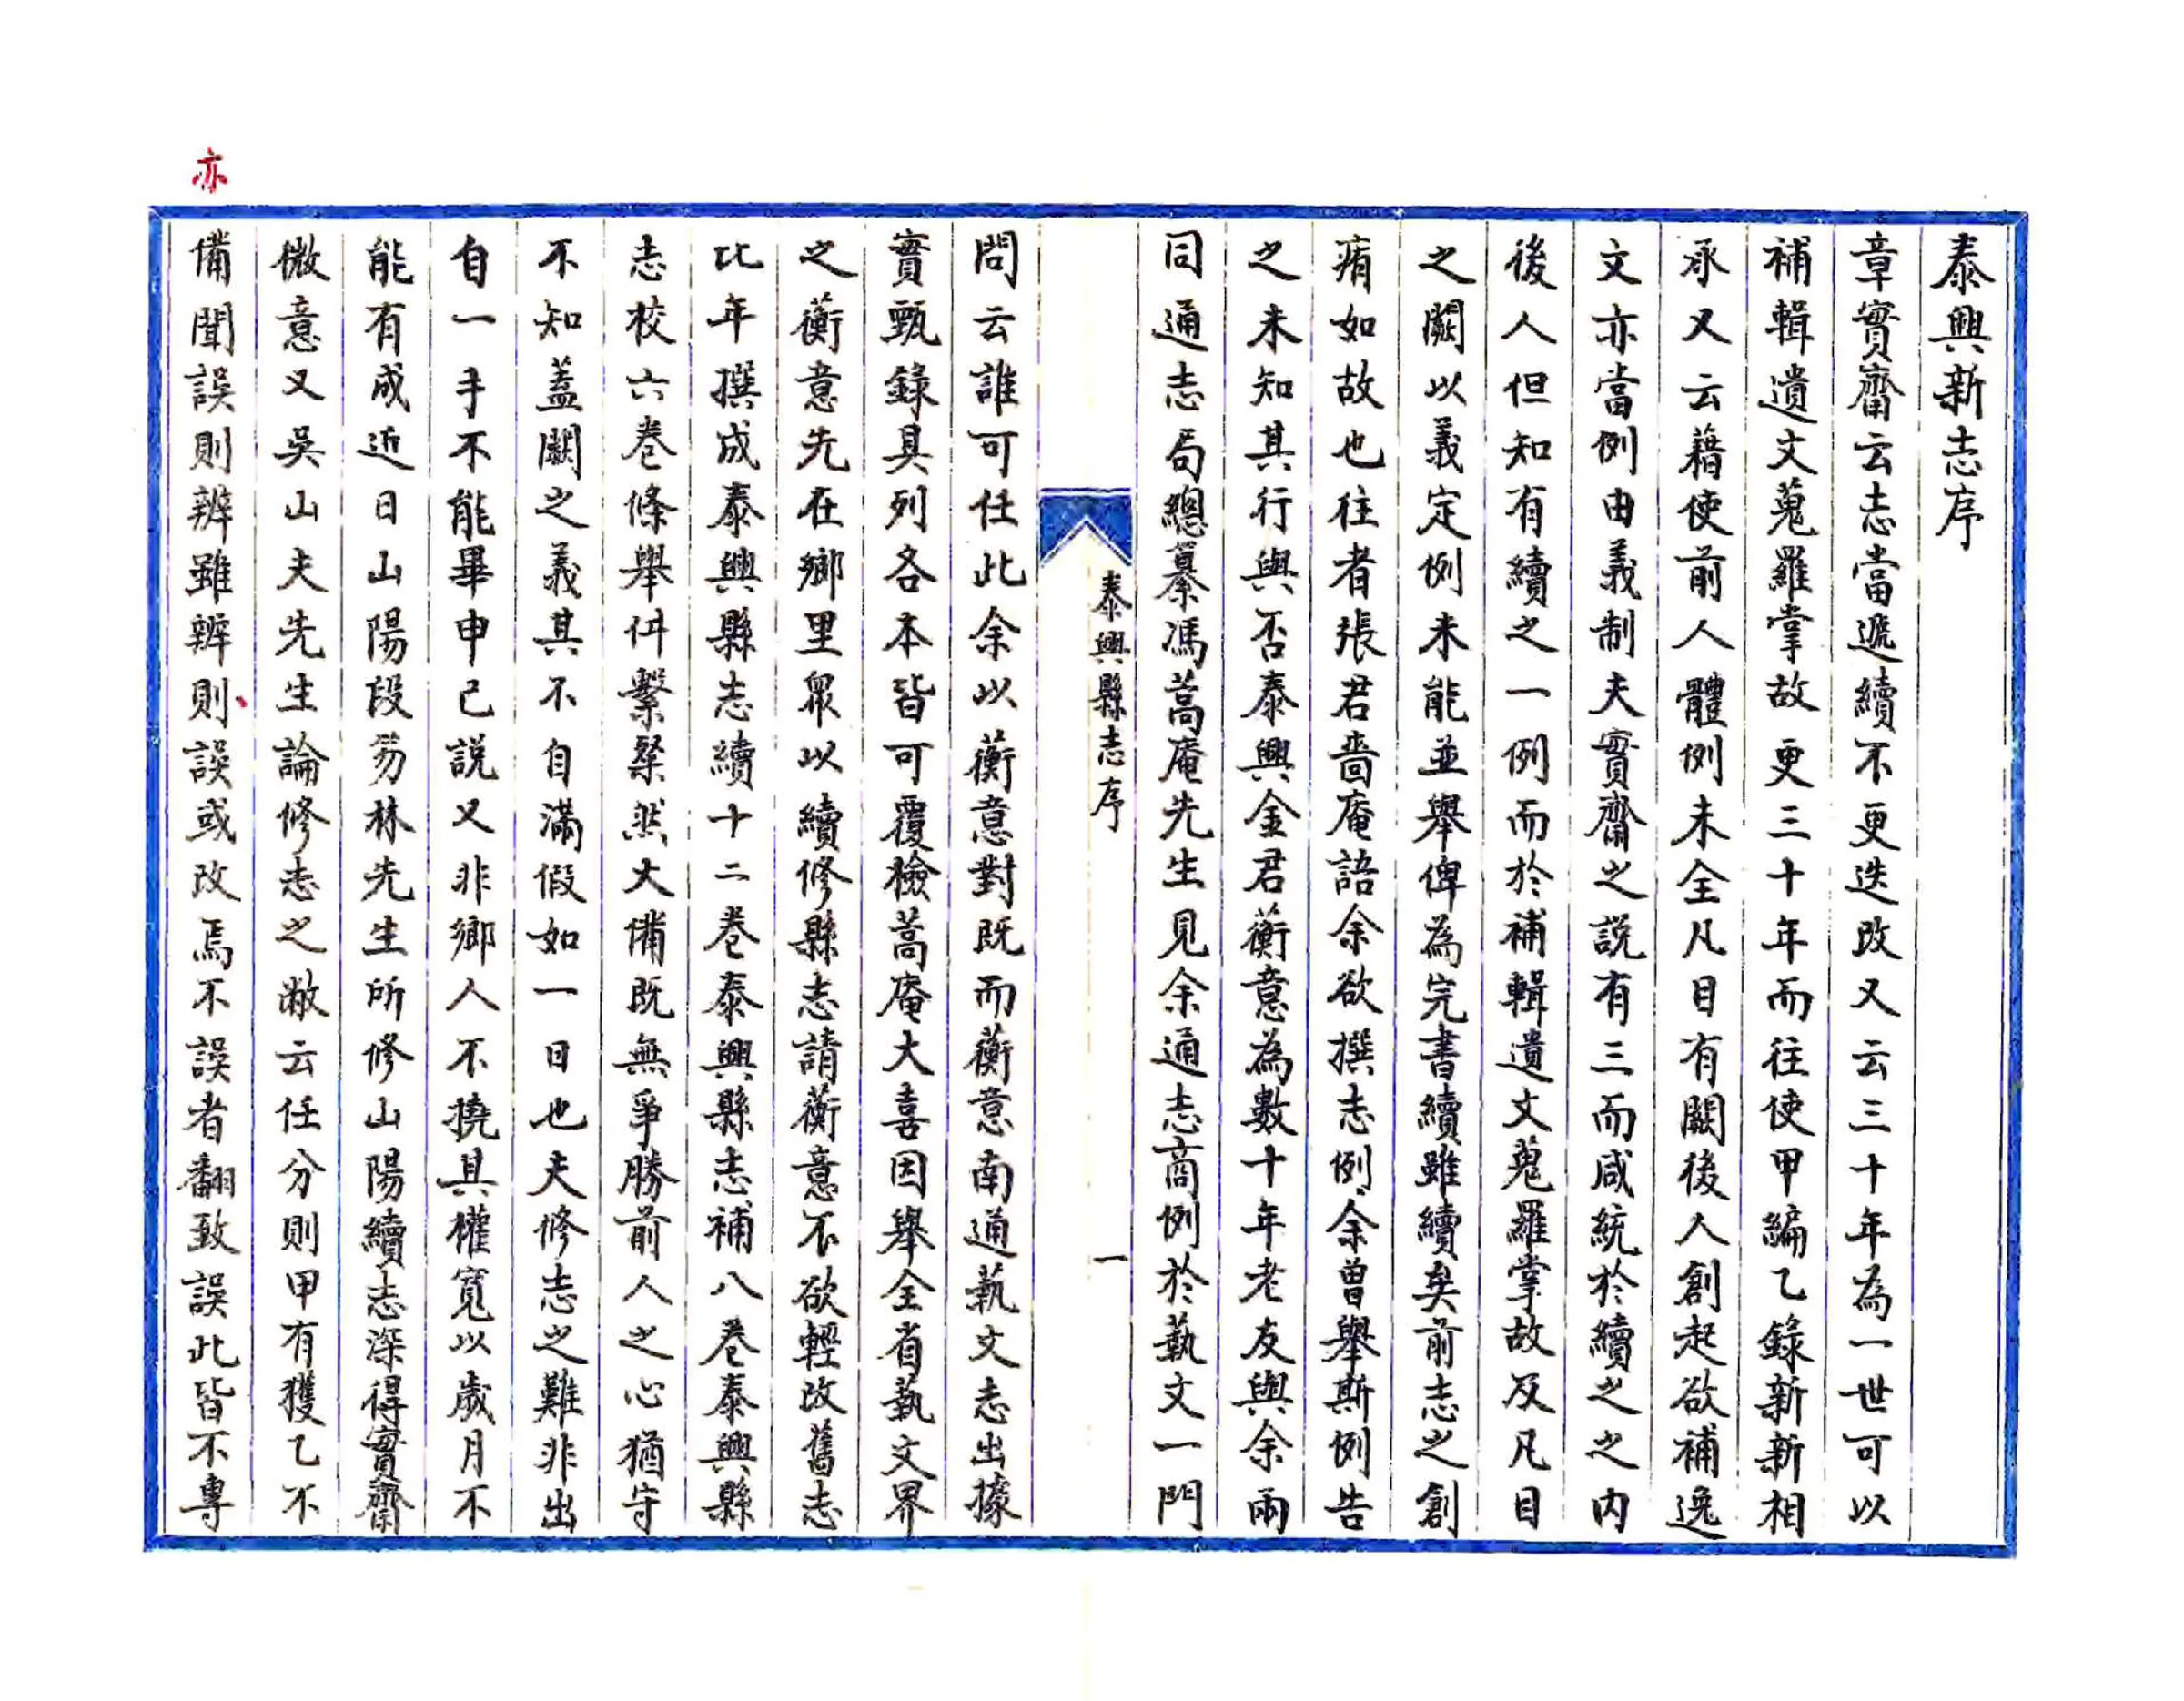 泰興新志序
章實齋云志當遞續不更迭改又云三十年為一世可以
補輯遺文蒐羅掌故更三十年而往使甲編乙錄新新相
承又云藉使前人體例未全凡目有闕後人創起欲補逸
文亦當例由義制夫實齋之說有三而咸統於續之之內
後人但知有續之一例而於補輯遺文蒐羅掌故及凡目
之闕以義定例未能並舉俾為完書續雖續矣前志之創
痏如故也往者張君嗇庵語余欲撰志例余曾舉斯例告
之未知其行與否泰興金君蘅意為數十年老友與余兩
同通志局總纂馮蒿庵先生見余通志商例於藝文一門
泰興縣志序
一
問云誰可任此余以蘅意對既而蘅意南通藝文志出據
實甄錄具列各本皆可覆檢蒿庵大喜因舉全省藝文界
之蘅意先在鄉里眾以續修縣志請蘅意不欲輕改舊志
比年撰成泰興縣志續十二卷泰興縣志補八卷泰興縣
志校六卷條舉件繫粲然大備既無爭勝前人之心猶守
不知蓋闕之義其不自滿假如一日也夫修志之難非出
自一手不能畢申己說又非鄉人不撓其權寬以歲月不
能有成近日山陽段芴林先生所修山陽續志深得實齋
微意又吳山夫先生論修志之敝云任分則甲有獲乙不
備聞誤則辨雖辨則誤或改焉不誤者翻致誤此皆不專
亦